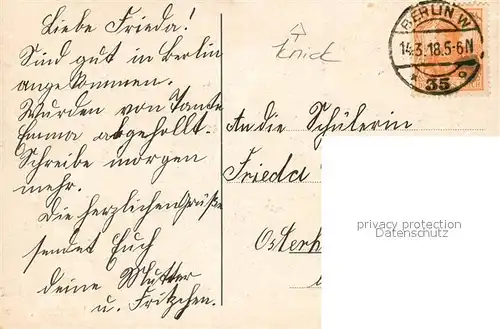 Liebe Frieda!
Sind gut in Berlin
angekommen.
Wurden von Tante
Emma abgehollt.
Schreibe morgen
mehr.
Die herzlichen Grüße
sendet Euch
deine Mutter
u. Fritzchen.
Knick
BERLIN W
14.3.18.5-6N
* 35 g
An die Schülerin
Frieda
privacy protection
Datenschutz
Osterh